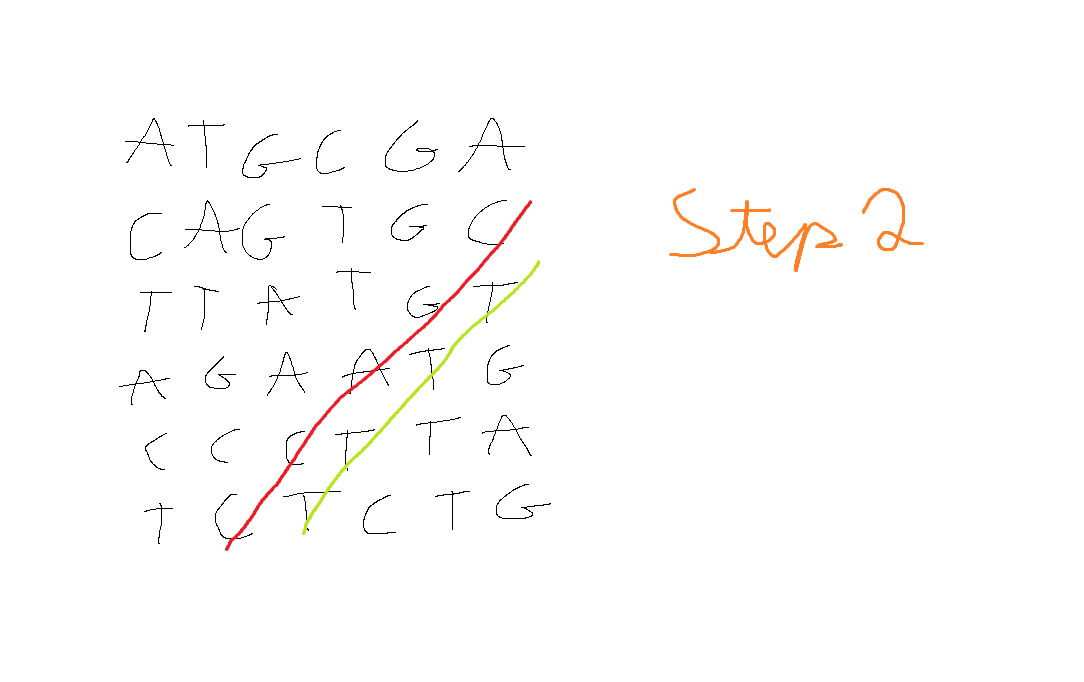 A T G C G A
C A G T G C
T T A T G T
A G A A T G
C C C T T A
T C T C T G
Step 2